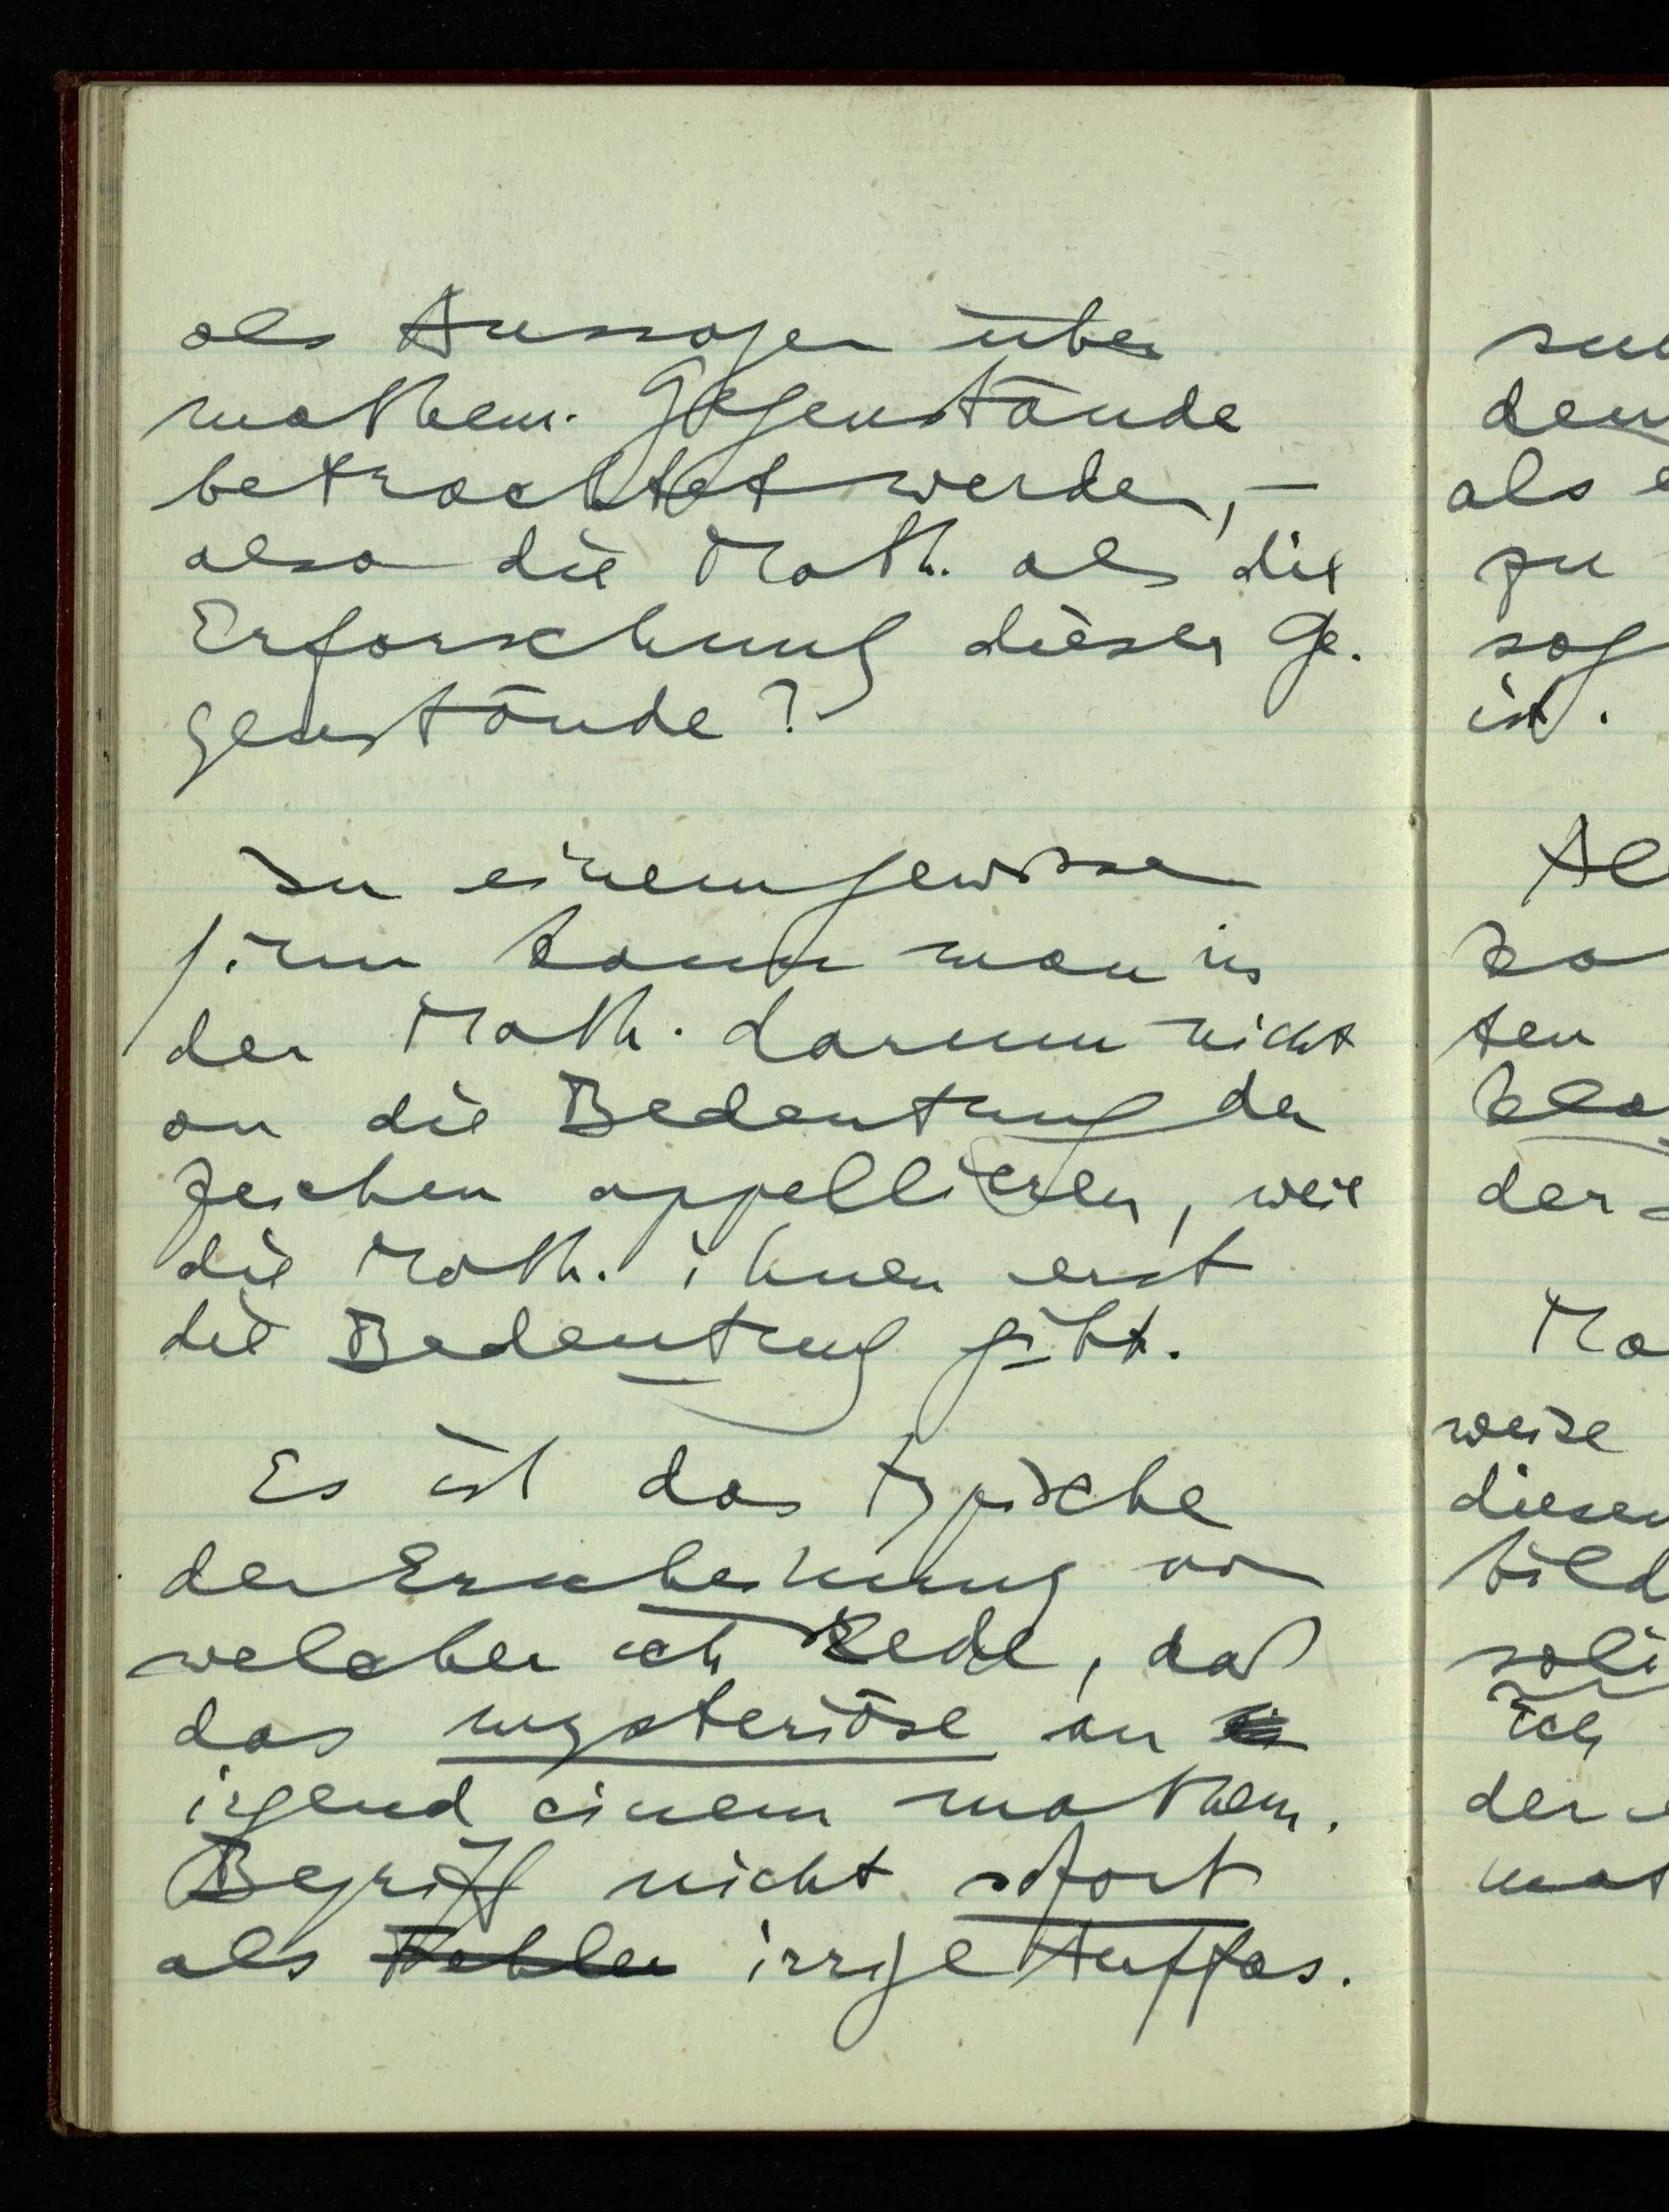 als Aussagen über
mathem. Gegenstände
betrachtet werden, –
also die Math. als die
Erforschung dieser Ge-
genstände?
In einem gewissen
Sinn kann man in
der Math. darum nicht
an die Bedeutung der
Zeichen appellieren, weil
die Math. ihnen erst
die Bedeutung gibt.
Es ist das typische
der Erscheinung von
welcher ich rede, daß
das mysteriöse an
irgend einem mathem.
Begriff nicht sofort
als Fehler irrige Auffas-
den
als
zu
ist.
ten
der
weise
diesen
bild
Ich
der